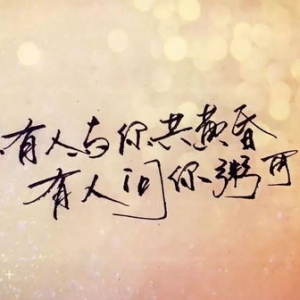 有人与你共黄昏
有人问你粥可